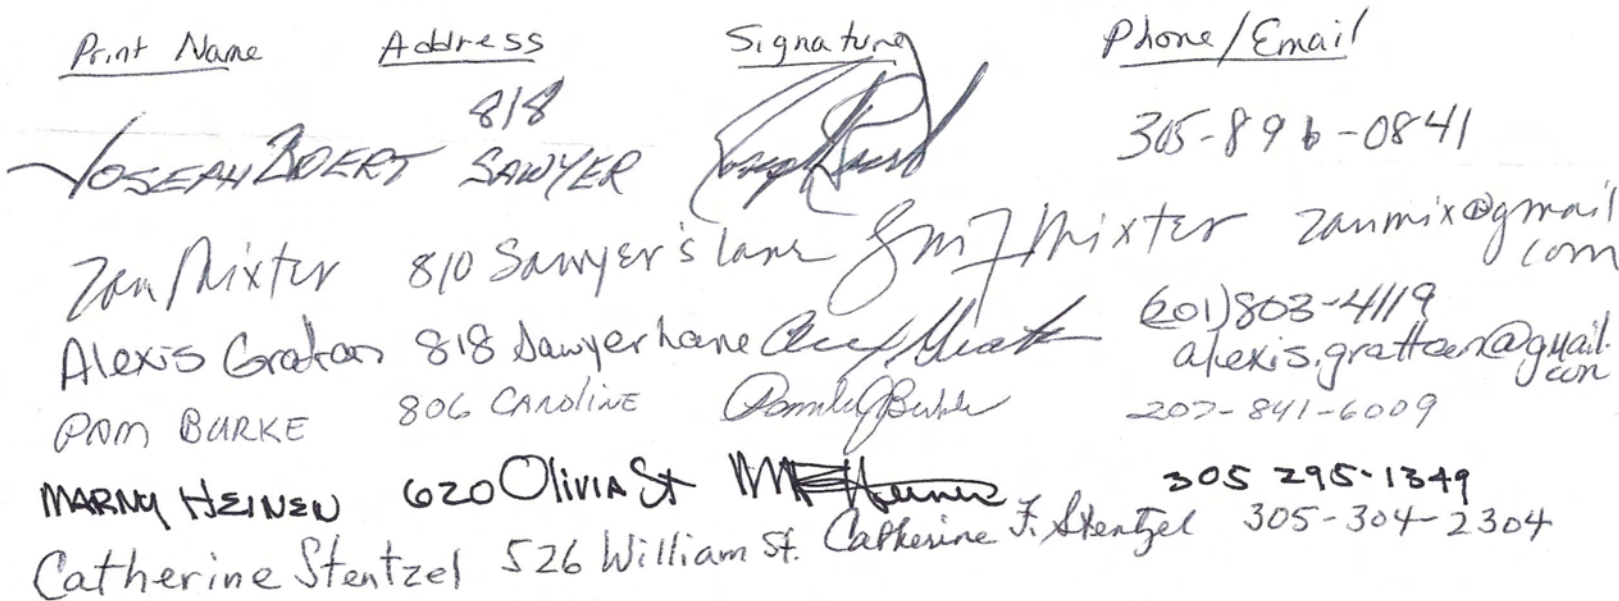 Print Name Address Signature Phone/Email
818
JOSEPH SAWYER 305-896-0841
Zan Mixter 810 Sawyer's Lane Mixter zanmix@gmail
com
Alexis Grattan 818 Sawyer Lane (201)803-4119
alexis.grattan@gmail.
com
PAM BURKE 806 CAROLINE 207-841-6009
MARNY HEINEN 620 OLIVIA St 305 295-1349
Catherine Stentzel 526 William St. Catherine F. Stentzel 305-304-2304